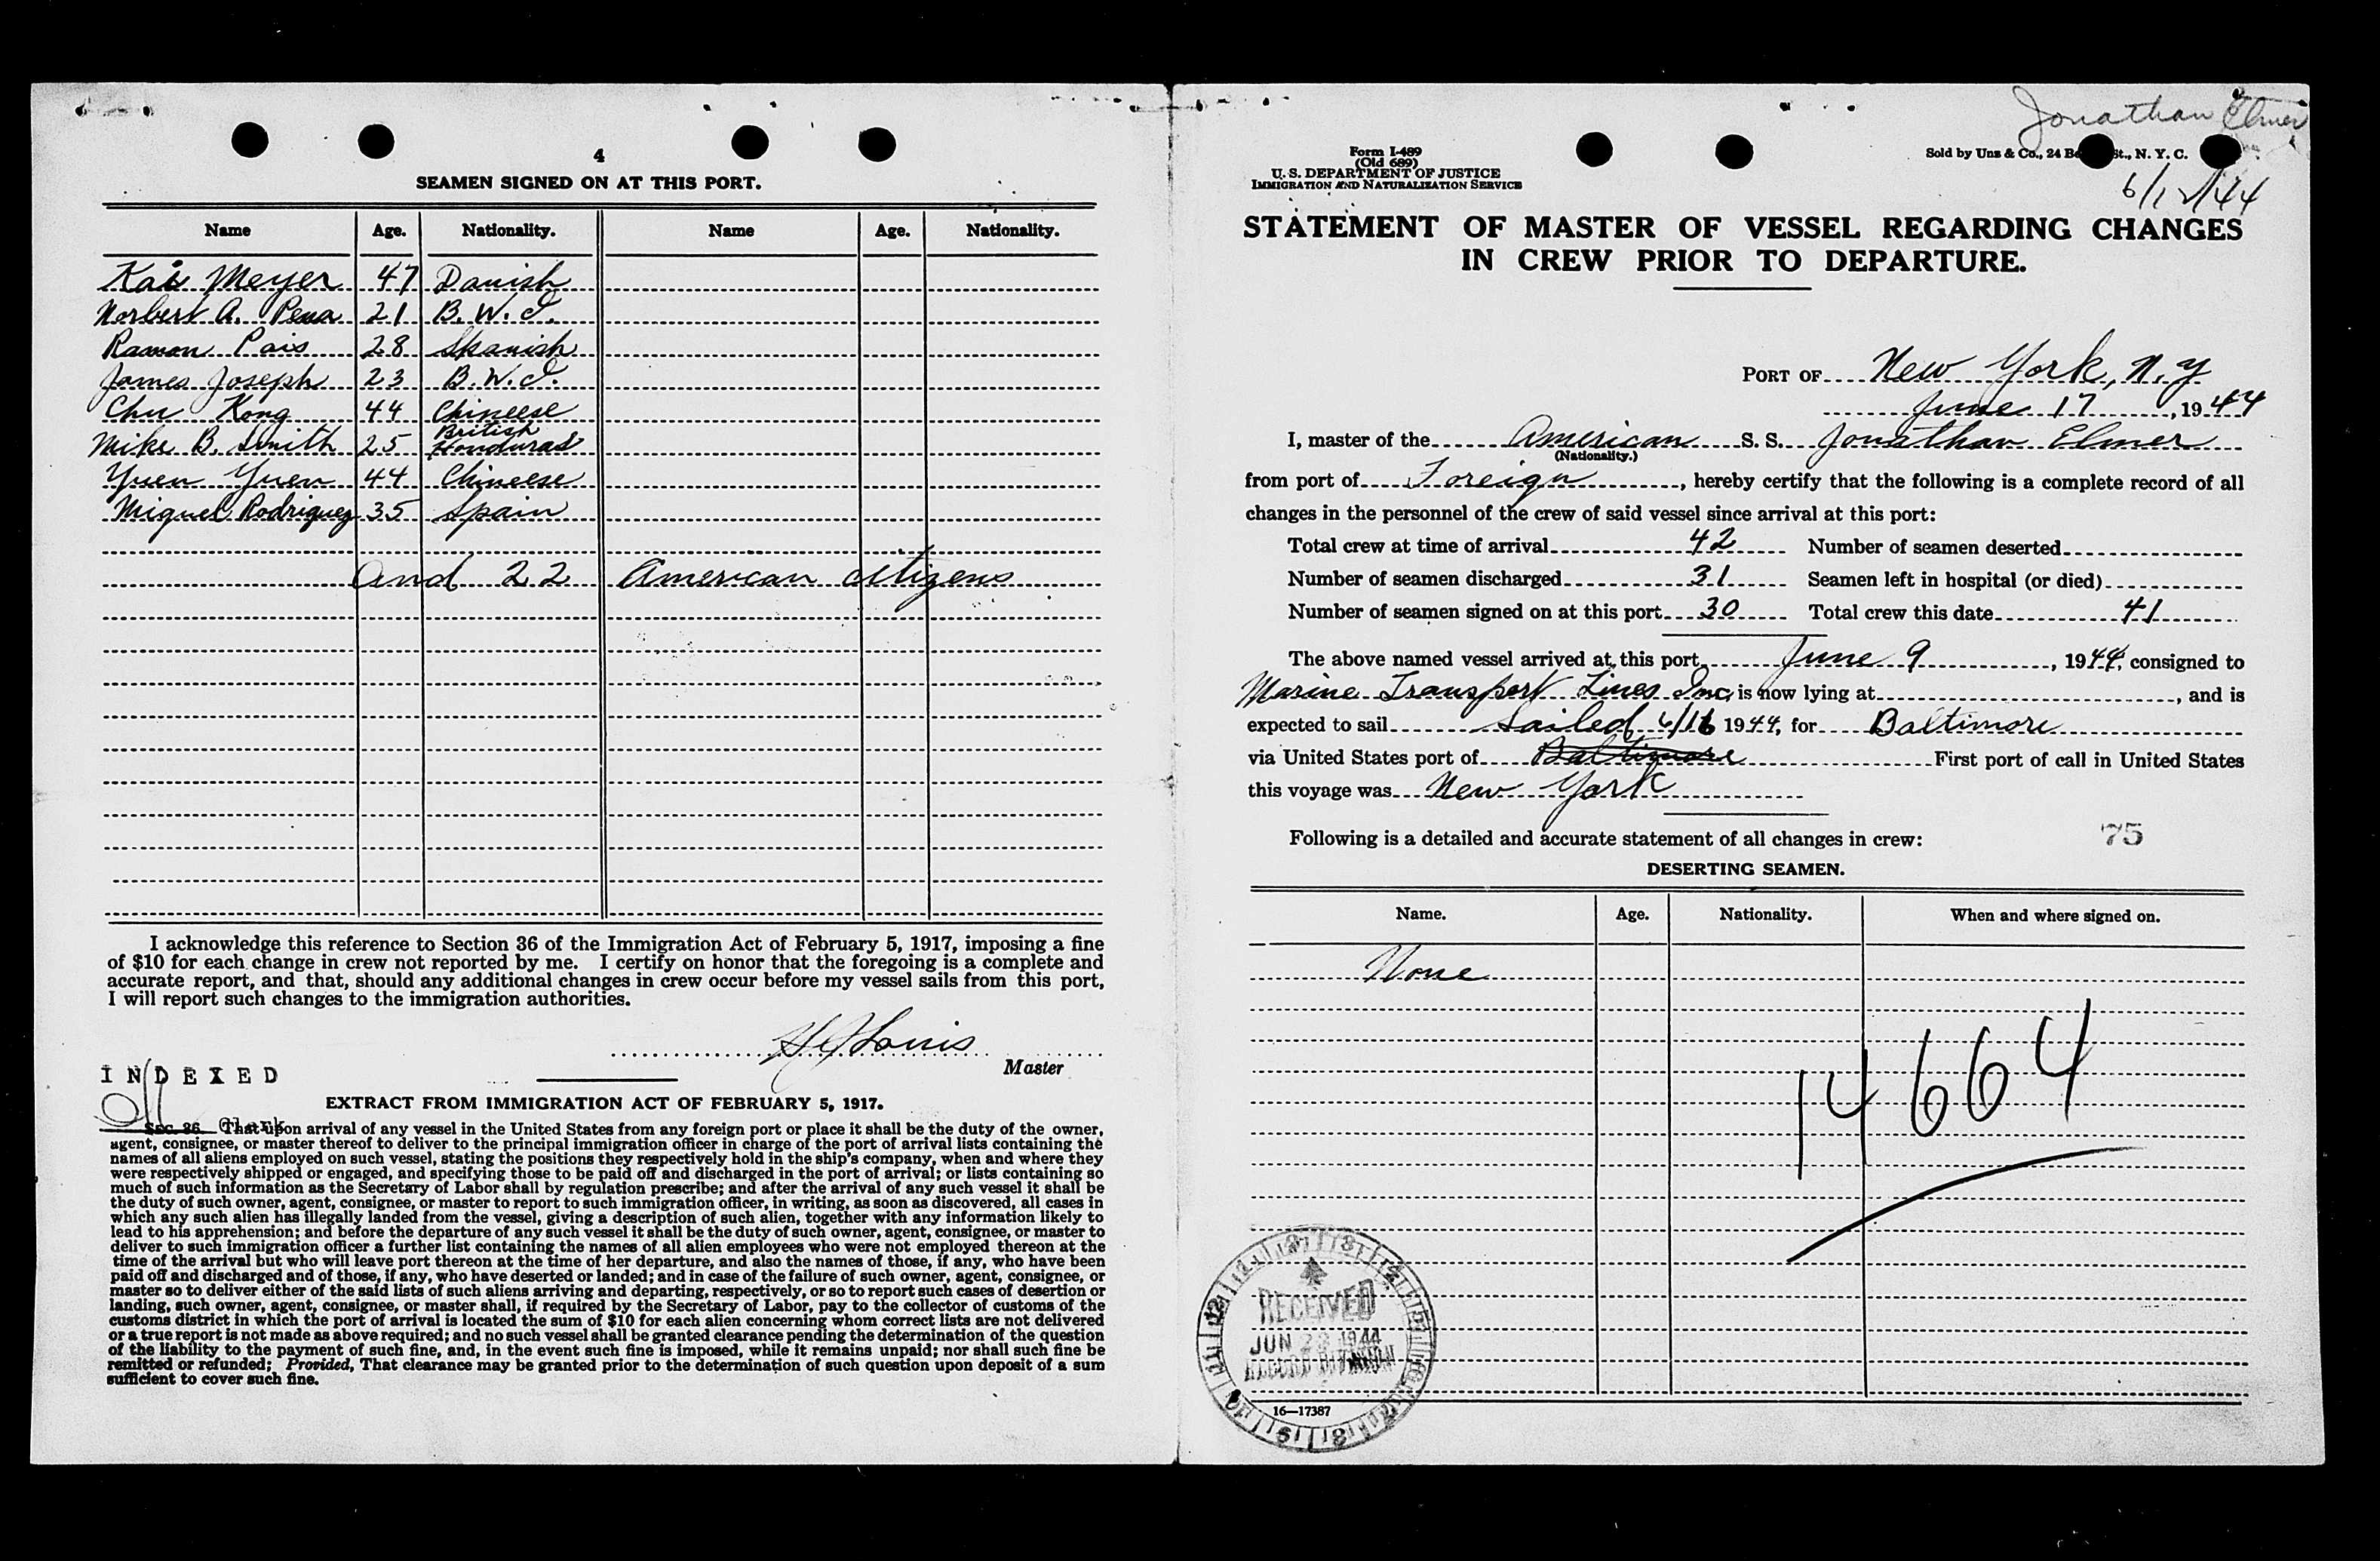 4
SEAMEN SIGNED ON AT THIS PORT.
Name Age. Nationality. Name Age. Nationality.
Kai Meyer 47 Danish
Norbert A. Pena 21 B. W. I.
Ramon Pais 28 Spanish
James Joseph 23 B. W. I.
Chu Kong 44 Chineese
Mike B. Smith 25 British Honduras
Yuen Yuen 44 Chineese
Miguel Rodriguez 35 Spain
and 22 American citizens
I acknowledge this reference to Section 36 of the Immigration Act of February 5, 1917, imposing a fine
of $10 for each change in crew not reported by me. I certify on honor that the foregoing is a complete and
accurate report, and that, should any additional changes in crew occur before my vessel sails from this port,
I will report such changes to the immigration authorities.
Master
INDEXED
EXTRACT FROM IMMIGRATION ACT OF FEBRUARY 5, 1917.
Sec. 36. That upon arrival of any vessel in the United States from any foreign port or place it shall be the duty of the owner,
agent, consignee, or master thereof to deliver to the principal immigration officer in charge of the port of arrival lists containing the
names of all aliens employed on such vessel, stating the positions they respectively hold in the ship's company, when and where they
were respectively shipped or engaged, and specifying those to be paid off and discharged in the port of arrival; or lists containing so
much of such information as the Secretary of Labor shall by regulation prescribe; and after the arrival of any such vessel it shall be
the duty of such owner, agent, consignee, or master to report to such immigration officer, in writing, as soon as discovered, all cases in
which any such alien has illegally landed from the vessel, giving a description of such alien, together with any information likely to
lead to his apprehension; and before the departure of any such vessel it shall be the duty of such owner, agent, consignee, or master to
deliver to such immigration officer a further list containing the names of all alien employees who were not employed thereon at the
time of the arrival but who will leave port thereon at the time of her departure, and also the names of those, if any, who have been
paid off and discharged and of those, if any, who have deserted or landed; and in case of the failure of such owner, agent, consignee, or
master so to deliver either of the said lists of such aliens arriving and departing, respectively, or so to report such cases of desertion or
landing, such owner, agent, consignee, or master shall, if required by the Secretary of Labor, pay to the collector of customs of the
customs district in which the port of arrival is located the sum of $10 for each alien concerning whom correct lists are not delivered
or a true report is not made as above required; and no such vessel shall be granted clearance pending the determination of the question
of the liability to the payment of such fine, and, in the event such fine is imposed, while it remains unpaid; nor shall such fine be
remitted or refunded; Provided, That clearance may be granted prior to the determination of such question upon deposit of a sum
sufficient to cover such fine.
Jonathan Elmer
Form I-489
(Old 689)
U. S. DEPARTMENT OF JUSTICE
IMMIGRATION AND NATURALIZATION SERVICE
Sold by Unz & Co., 24 St., N. Y. C.
6/12/44
STATEMENT OF MASTER OF VESSEL REGARDING CHANGES
IN CREW PRIOR TO DEPARTURE.
PORT OF New York, N.Y
June 17, 1944
I, master of the American S. S. Jonathan Elmer
(Nationality.)
from port of Foreign, hereby certify that the following is a complete record of all
changes in the personnel of the crew of said vessel since arrival at this port:
Total crew at time of arrival 42 Number of seamen deserted
Number of seamen discharged 31 Seamen left in hospital (or died)
Number of seamen signed on at this port 30 Total crew this date 41
The above named vessel arrived at this port June 9, 1944, consigned to
Marine Transport Lines Inc, is now lying at , and is
expected to sail Sailed 6/16 1944, for Baltimore
via United States port of Baltimore First port of call in United States
this voyage was New York
Following is a detailed and accurate statement of all changes in crew:
75
DESERTING SEAMEN.
Name. Age. Nationality. When and where signed on.
None
14664
RECEIVED
JUN 1944
16—17387